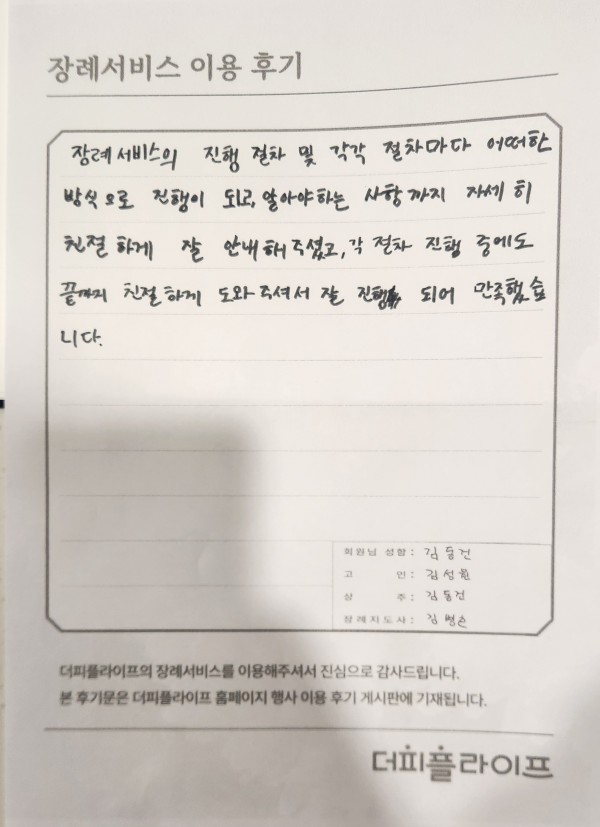 장례서비스 이용 후기
장례서비스의 진행 절차 및 각각 절차마다 어떠한
방식으로 진행이 되고, 알아야하는 사항까지 자세히
친절하게 잘 안내해주셨고, 각 절차 진행 중에도
끝까지 친절하게 도와주셔서 잘 진행 되어 만족했습
니다.
회원님 성함 : 김동건
고 인 : 김성원
상 주 : 김동건
장례지도사 : 김병손
더피플라이프의 장례서비스를 이용해주셔서 진심으로 감사드립니다.
본 후기문은 더피플라이프 홈페이지 행사 이용 후기 게시판에 기재됩니다.
더피플라이프